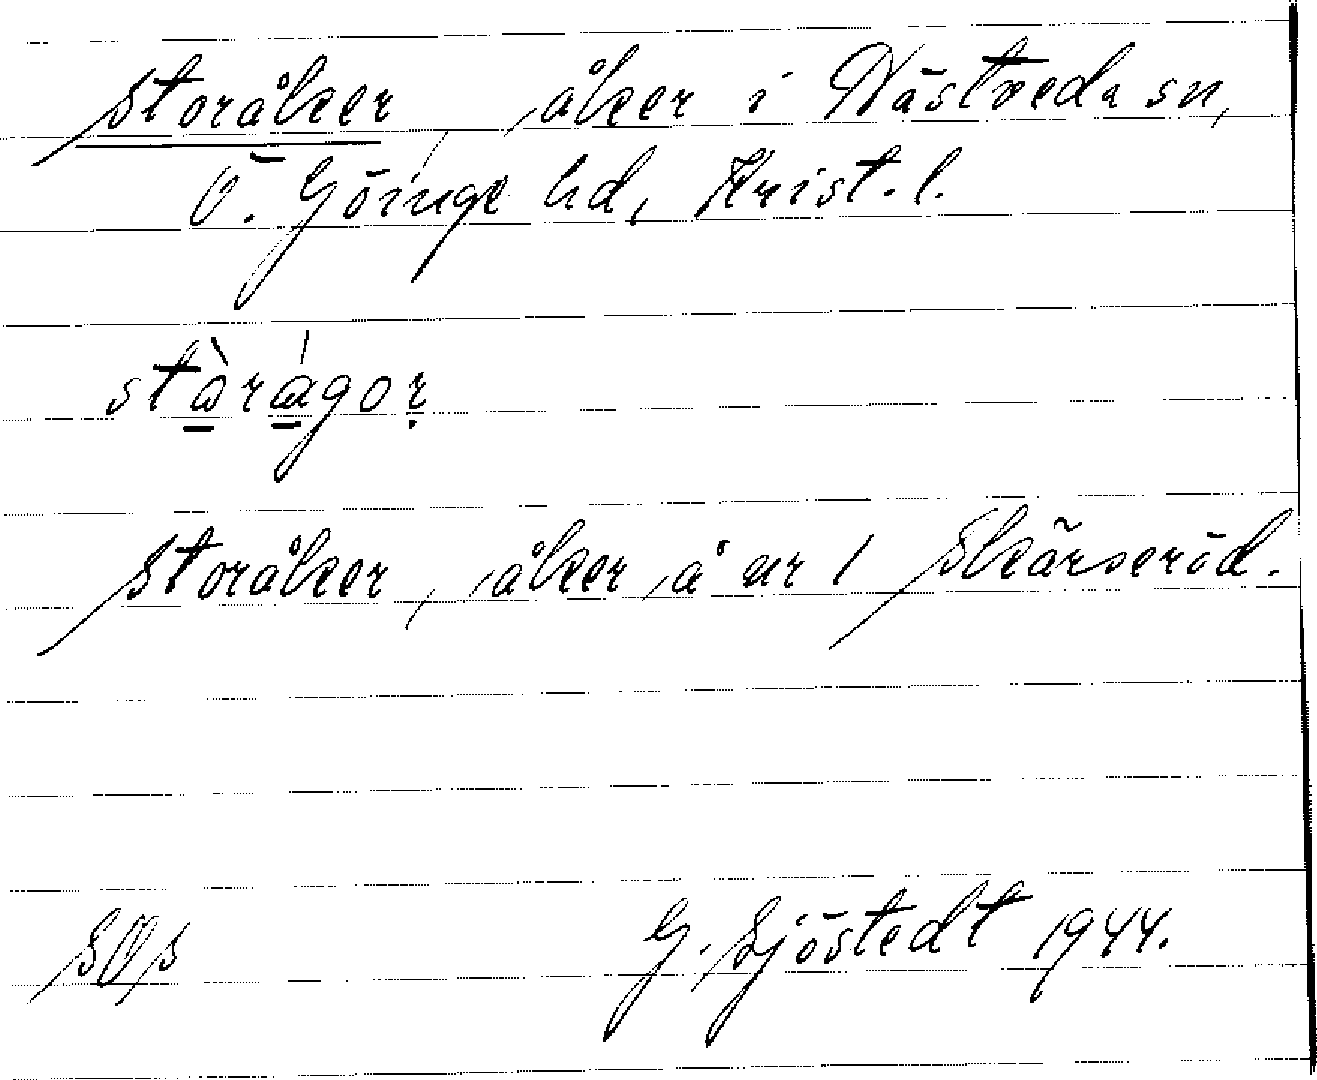 Storåker, åker i Nästveda sn,
Ö. Göinge hd, Krist. l.
stòrágor
Storåker, åker å nr 1 Skärseröd.
SOS G. Sjöstedt 1944.